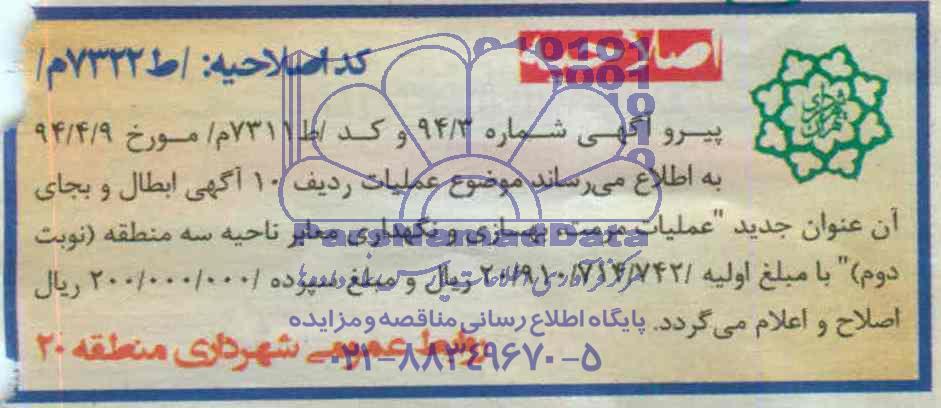 اصلاحیه
کد اصلاحیه: /ط۷۳۲۲م/
پیرو آگهی شماره ۹۴/۳ و کد /ط۷۳۱۱م/ مورخ ۹۴/۴/۹
به اطلاع می‌رساند موضوع عملیات ردیف ۱۰ آگهی ابطال و بجای
آن عنوان جدید "عملیات مرمت، بهسازی و نگهداری معابر ناحیه سه منطقه (نوبت
دوم)" با مبلغ اولیه /۲۰/۹۱۰/۷۱۴/۷۴۲ ریال و مبلغ سپرده /۲۰۰/۰۰۰/۰۰۰ ریال
اصلاح و اعلام می‌گردد.
روابط عمومی شهرداری منطقه ۲۰
ParsNamadData
پایگاه اطلاع رسانی مناقصه و مزایده
۰۲۱-۸۸۳۴۹۶۷۰-۵